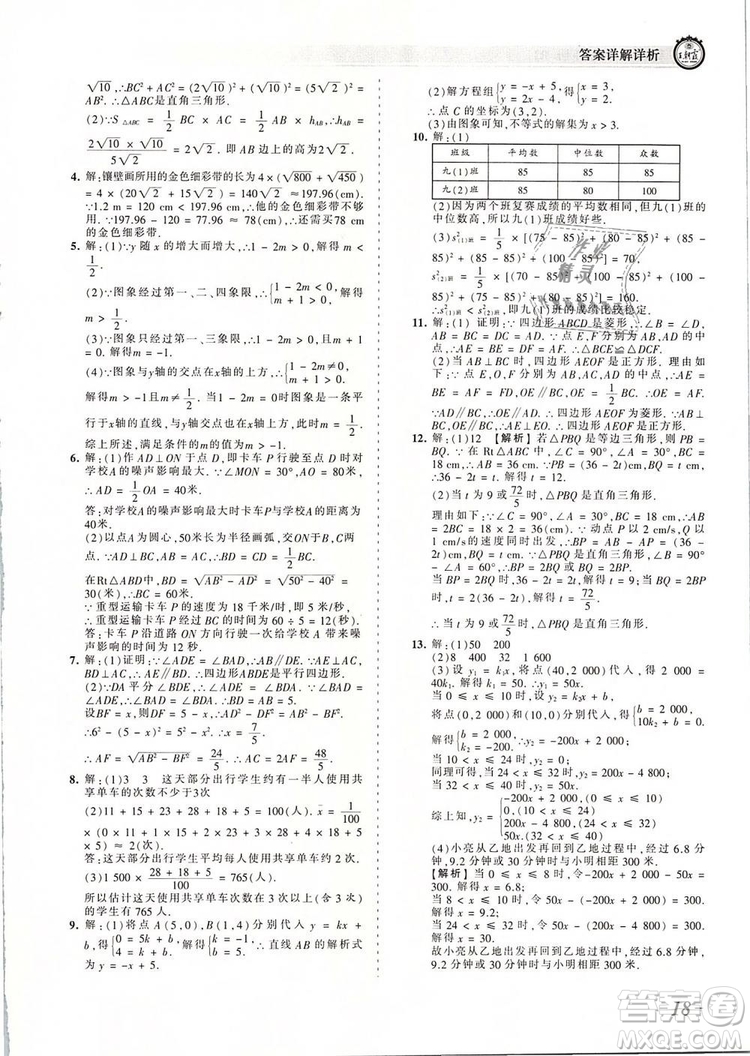 答案详解详析
√10,∴BC² + AC² = (2√10)² + (√10)² = (5√2)² =
AB²,∴△ABC是直角三角形.
(2)∵S△ABC = 1/2 BC × AC = 1/2 AB × hAB,∴hAB =
2√10 × √10 / 5√2 = 2√2,即AB边上的高为2√2.
4. 解:镶壁画所用的金色细彩带的长为4 × (√800 + √450)
= 4 × (20√2 + 15√2) = 140√2 ≈ 197.96(cm).
∵1.2 m = 120 cm < 197.96 cm,∴他的金色细彩带不
够长.∵197.96 - 120 = 77.96 ≈ 78(cm),∴还需买78 cm
的金色细彩带.
5. 解:(1)∵y随x的增大而增大,∴1 - 2m > 0,解得m <
1/2.
(2)∵图象经过第一、二、四象限,∴{1 - 2m < 0, m + 1 > 0,解得
m > 1/2.
(3)∵图象只经过第一、三象限,∴{1 - 2m > 0, m + 1 = 0,解得
m = -1.
(4)∵图象与y轴的交点在x轴的上方,∴{1 - 2m ≠ 0, m + 1 > 0,解
得m > -1且m ≠ 1/2.当1 - 2m = 0时,图象是一条平
行于x轴的直线,与y轴的交点也在x轴上方,此时m =
1/2.综上所述,满足条件的m的值为m > -1.
6. 解:(1)作AD⊥ON于D,即卡车P行驶至点D时对
学校A的噪声影响最大.∵∠MON = 30°,OA = 80
米,∴AD = 1/2 OA = 40米.
答:对学校A的噪声影响最大时卡车P与学校A的距离为
40米.
(2)以点A为圆心,50米长为半径画弧,交ON于B,C
两点.∵AD⊥BC,AB = AC,∴BD = CD = 1/2 BC.
在Rt△ABD中,BD = √(AB² - AD²) = √(50² - 40²) =
30(米),∴BC = 60米.
∵重型运输卡车P的速度为18千米/时,即300米/分,
∴重型运输卡车P经过BC的时间为60 ÷ 5 = 12(秒).
答:卡车P沿道路ON方向行驶一次给学校A带来噪
声影响的时间为12秒.
7. 解:(1)证明:∵∠ADE = ∠BAD,∴AB∥DE.∵AE⊥AC,
BD⊥AC,∴AE∥BD,∴四边形ABDE是平行四边形.
(2)∵DA平分∠BDE,∴∠ADE = ∠BDA.∵∠ADE =
∠BAD,∴∠BAD = ∠BDA,∴BD = AB = 5.
设BF = x,则DF = 5 - x,∴AD² - DF² = AB² - BF²,
∴6² - (5 - x)² = 5² - x²,∴x = 7/5,
∴AF = √(AB² - BF²) = 24/5,∴AC = 2AF = 48/5.
8. 解:(1)3 3 这天部分出行学生约有一半使用共
享单车的次数不少于3次
(2)11 + 15 + 23 + 28 + 18 + 5 = 100(人),x̄ = 1/100
× (0 × 11 + 1 × 15 + 2 × 23 + 3 × 28 + 4 × 18 + 5 ×
5) ≈ 2(次).
答:这天部分出行学生平均每人使用共享单车约2次.
(3)1 500 × (28 + 18 + 5)/100 = 765(人).
所以估计这天使用共享单车次数在3次以上(含3次)
的学生有765人.
9. 解:(1)将点A(5,0),B(1,4)分别代入y = kx +
b,得{0 = 5k + b, 4 = k + b,解得{k = -1, b = 5,∴直线AB的解析式
为y = -x + 5.
(2)解方程组{y = -x + 5, y = 2x - 4,得{x = 3, y = 2,
∴点C的坐标为(3,2).
(3)由图象可知,不等式的解集为x > 3.
10. 解:(1)
班级 平均数 中位数 众数
九(1)班 85 85 85
九(2)班 85 80 100
(2)因为两个班复赛成绩的平均数相同,但九(1)班的
中位数高,所以九(1)班成绩好些.
(3)s²(1)班 = 1/5 × [(75 - 85)² + (80 - 85)² + (85 -
85)² + (85 - 85)² + (100 - 85)²] = 70,
s²(2)班 = 1/5 × [(70 - 85)² + (100 - 85)² + (100 -
85)² + (75 - 85)² + (80 - 85)²] = 160,
∴s²(1)班 < s²(2)班,即九(1)班的成绩比较稳定.
11. 解:(1)证明:∵四边形ABCD是菱形,∴∠B = ∠D,
AB = BC = DC = AD.∵点E,O,F分别为AB,AC,AD
的中点,∴AE = BE = DF = AF,∴△BCE≌△DCF.
(2)当AB⊥BC时,四边形AEOF是正方形.理由如
下:∵点E,O,F分别为AB,AC,AD的中点,∴AE =
BE = AF = FD,OE = 1/2 BC,OE∥BC,OF = 1/2 DC,
OF∥DC.∵四边形ABCD为菱形,∴AB = BC = CD =
AD,AD∥BC,∴OE∥AD,OF∥AB,∴OE = AE = OF
= AF,∴四边形AEOF为菱形.∵AB⊥BC,OE∥BC,
∴OE⊥AB,∴四边形AEOF是正方形.
12. 解:(1)12 【解析】若△PBQ是等边三角形,则PB =
BQ.∵在Rt△ABC中,∠C = 90°,∠A = 30°,BC =
18 cm,∴AB = 36 cm.∵BP = (36 - 2t) cm,BQ = t cm,
∴36 - 2t = t.解得t = 12.
(2)当t为9或72/5时,△PBQ是直角三角形.
理由如下:∵∠C = 90°,∠A = 30°,BC = 18 cm,∴AB
= 2BC = 18 × 2 = 36(cm).∵动点P,Q以2 cm/s,
1 cm/s的速度同时出发,∴BP = AB - AP = (36 - 2t) cm,
BQ = t cm.∵△PBQ是直角三角形,
∴BP = 2BQ或BQ = 2BP.
当BP = 2BQ时,36 - 2t = 2t,解得t = 9;
当BQ = 2BP时,t = 2(36 - 2t),解得t = 72/5.
∴当t为9或72/5时,△PBQ是直角三角形.
13. 解:(1)50 200
(2)8 400 32 1 600
(3)设y₁ = k₁x,将点(40,2 000)代入,得2 000 =
40k₁,解得k₁ = 50,∴y₁ = 50x.
当0 ≤ x ≤ 10时,设y₂ = k₂x + b,
将点(0,2 000)和(10,0)分别代入,得{b = 2 000, 10k₂ + b = 0,
解得{b = 2 000, k₂ = -200,∴y₂ = -200x + 2 000;
当10 < x ≤ 24时,y₂ = 0;
同理可得:当24 < x ≤ 32时,y₂ = 200x - 4 800;
当32 < x ≤ 40时,y₂ = 50x.
综上知,y₂ = {-200x + 2 000(0 ≤ x ≤ 10)
0(10 < x ≤ 24)
200x - 4 800(24 < x ≤ 32)
50x(32 < x ≤ 40)
(4)小亮从乙地出发再回到乙地过程中,经过6.8分
钟、9.2分钟或30分钟时与小明相距300米.
【解析】当0 ≤ x ≤ 8时,令50x - (-200x + 2 000) = -300,
解得x = 6.8;
当8 < x ≤ 10时,令50x - (-200x + 2 000) = 300,
解得x = 9.2;
当24 < x ≤ 32时,令50x - (200x - 4 800) = 300,
解得x = 30.
故小亮从乙地出发再回到乙地过程中,经过6.8分钟、
9.2分钟或30分钟时与小明相距300米.
18
答案圈
MXQE.COM